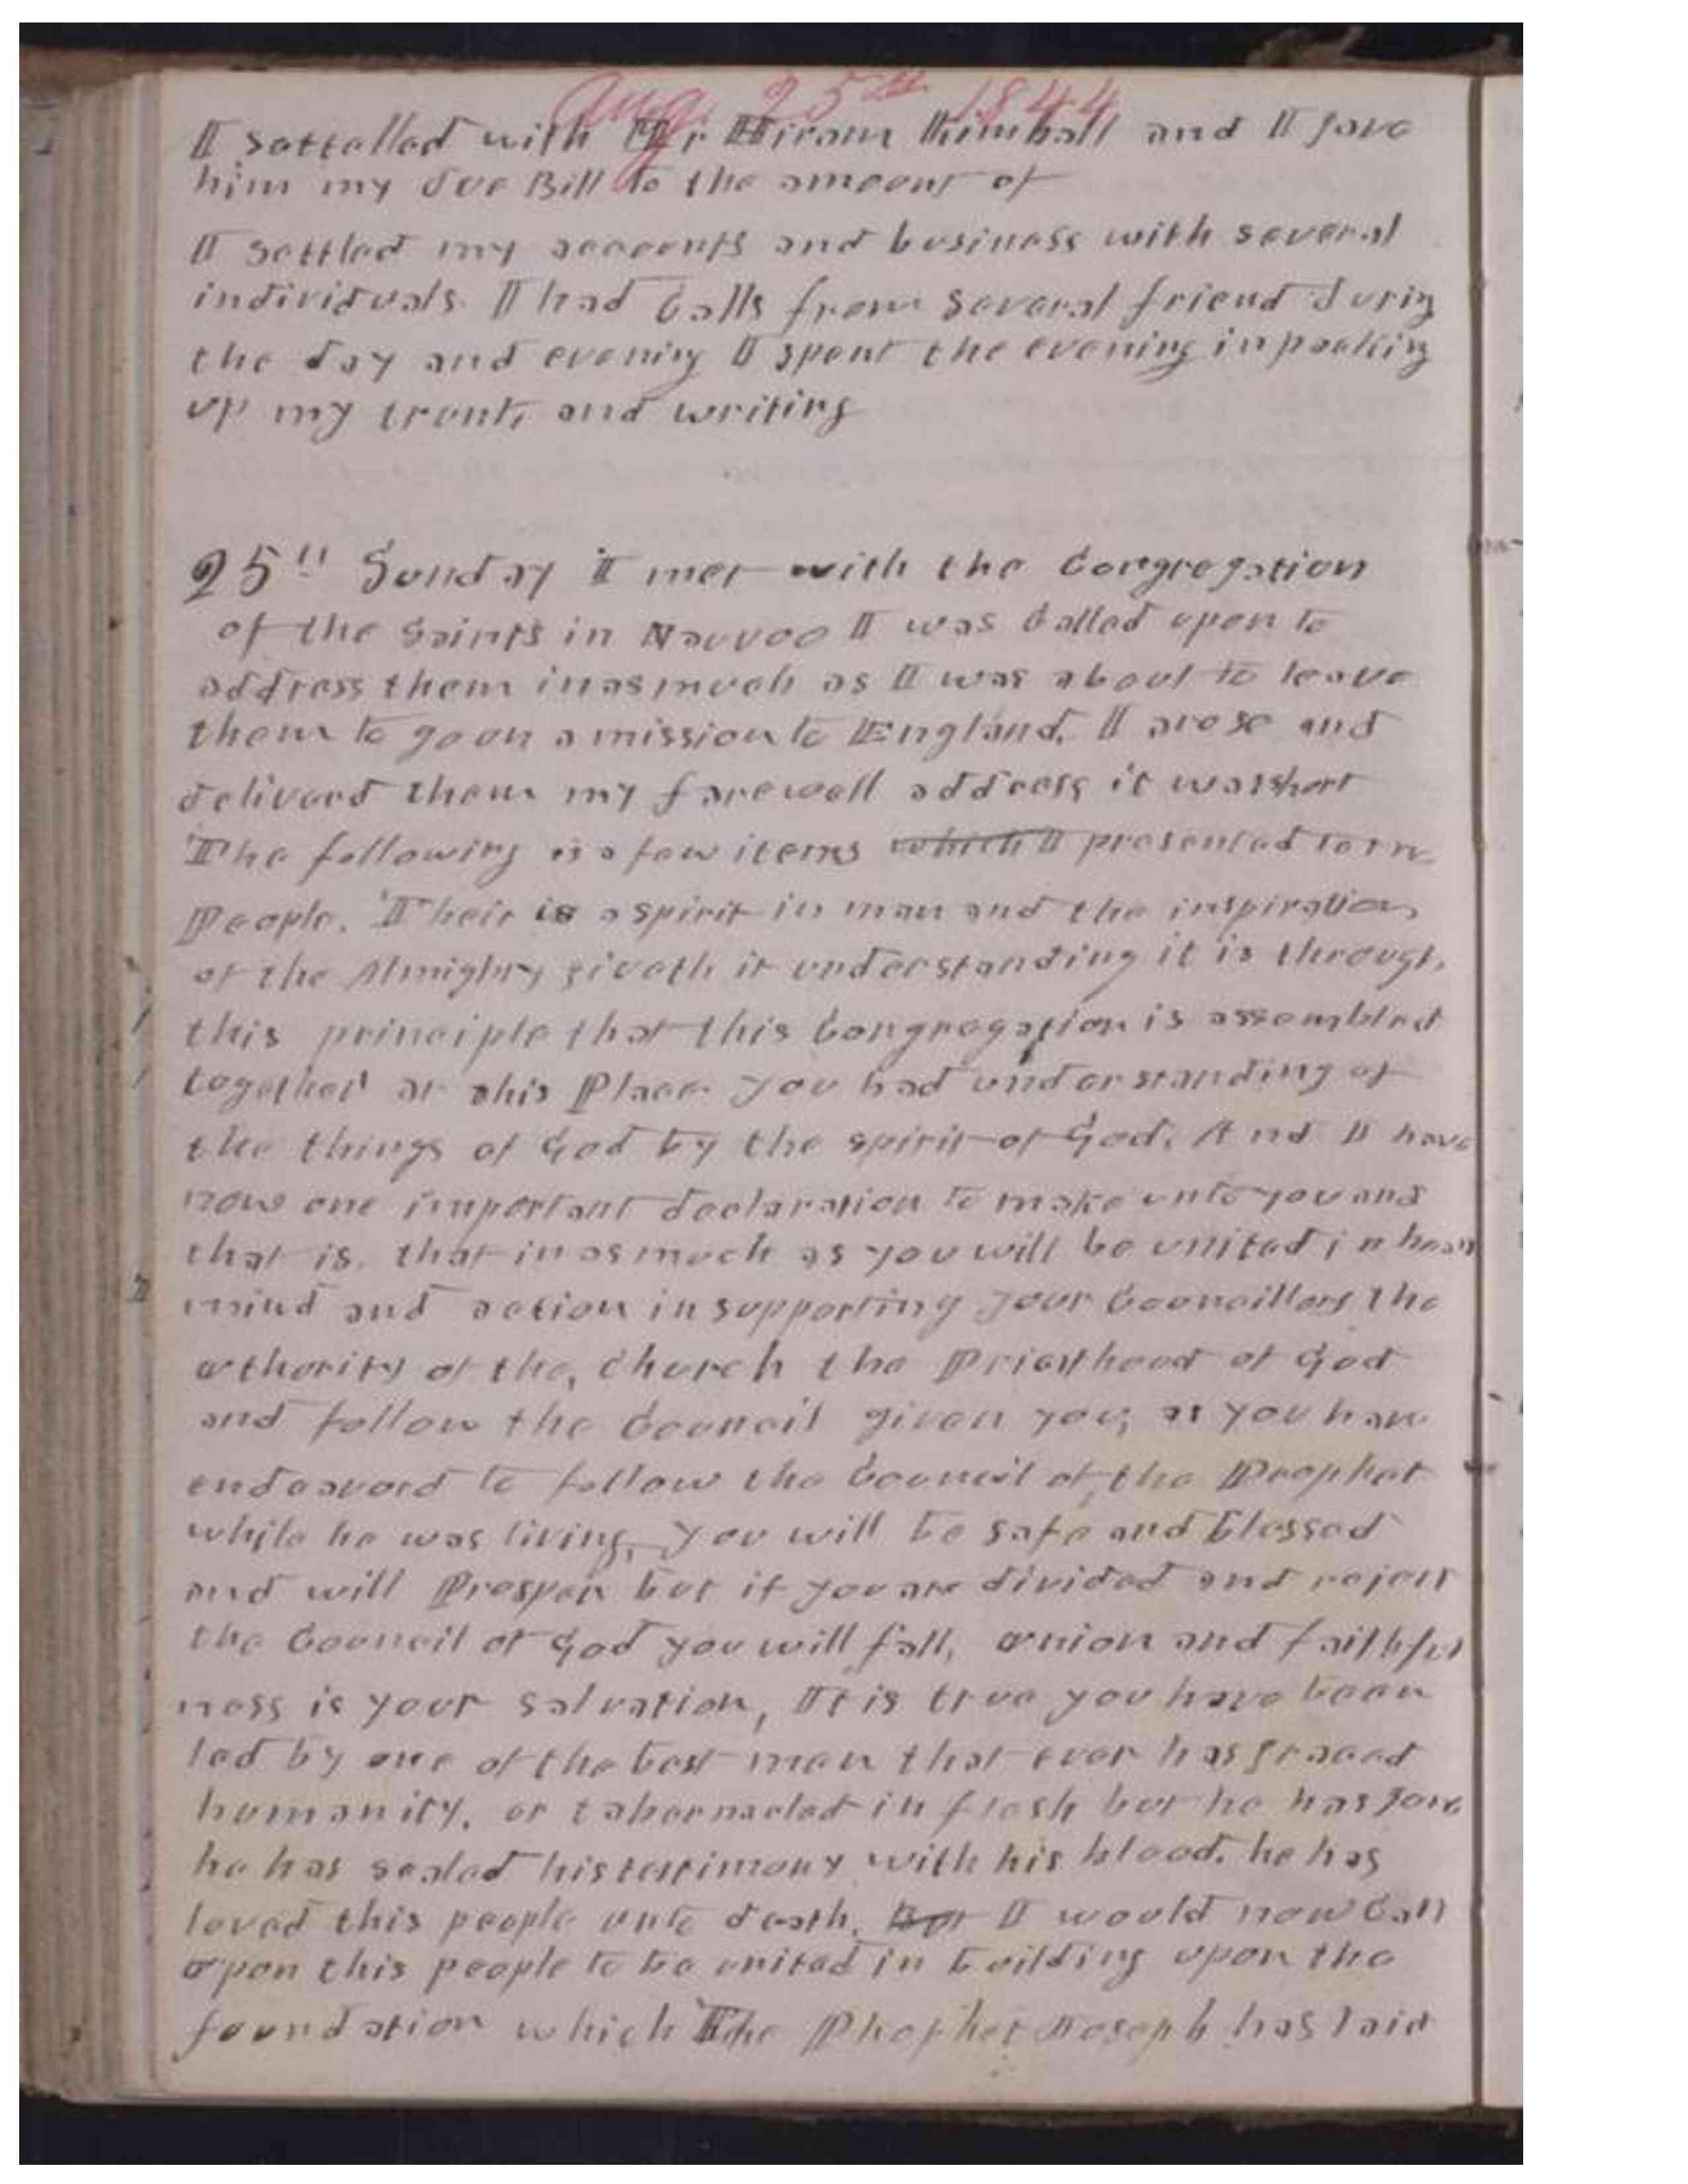 Aug. 25th 1844
I settelled with Mr Hiram Kimball and I gave
him my due Bill to the amount of
I settled my accounts and business with several
individuals I had Calls from several friend during
the day and evening I spent the evening in packing
up my trunk, and writing
25th Sunday I met with the Congregation
of the Saints in Nauvoo I was Called upon to
address them inasmuch as I was about to leave
them to go on a mission to England. I arose and
deliverd them my farewell address it was short
The following is a few items which I presented to the
People. Their is a spirit in man and the inspiration
of the Almighty giveth it understanding it is through
this principle that this Congregation is assembled
together at this Place you had understanding of
the things of God by the spirit of God. And I have
now one important declaration to make unto you and
that is. that in as much as you will be united in heart
mind and action in supporting your Councillors the
authority of the, Church the Priesthood of God
and follow the Council given you, as you have
endeavord to follow the Council of the Prophet
while he was living, you will be safe and blessed
and will Prosper but if you are divided and reject
the Council of God you will fall, union and faithful
ness is your salvation, It is true you have been
led by one of the best men that ever has graced
humanity, or tabernacled in flesh but he has gone
he has sealed his testimony with his blood. he has
loved this people unto death. But I would now Call
upon this people to be united in building upon the
foundation which The Phophet Joseph has laid